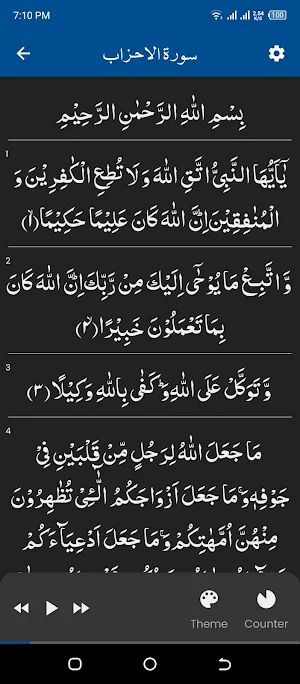 7:10 PM
2.54 K/s 100
سورة الاحزاب
بِسْمِ اللّٰهِ الرَّحْمٰنِ الرَّحِيْمِ
1
يٰۤاَيُّهَا النَّبِىُّ اتَّقِ اللّٰهَ وَلَا تُطِعِ الْكٰفِرِيْنَ وَ
الْمُنٰفِقِيْنَ ؕ اِنَّ اللّٰهَ كَانَ عَلِيْمًا حَكِيْمًا ﴿۱﴾
2
وَّاتَّبِعْ مَا يُوْحٰٓى اِلَيْكَ مِنْ رَّبِّكَ ؕ اِنَّ اللّٰهَ كَانَ
بِمَا تَعْمَلُوْنَ خَبِيْرًا ﴿۲﴾
3
وَّتَوَكَّلْ عَلَى اللّٰهِ ؕ وَكَفٰى بِاللّٰهِ وَكِيْلًا ﴿۳﴾
4
مَا جَعَلَ اللّٰهُ لِرَجُلٍ مِّنْ قَلْبَيْنِ فِىْ
جَوْفِهٖ ۚ وَمَا جَعَلَ اَزْوَاجَكُمُ الّٰٓـئِْ تُظٰهِرُوْنَ
مِنْهُنَّ اُمَّهٰتِكُمْ ۚ وَمَا جَعَلَ اَدْعِيَآءَكُمْ
Theme
Counter